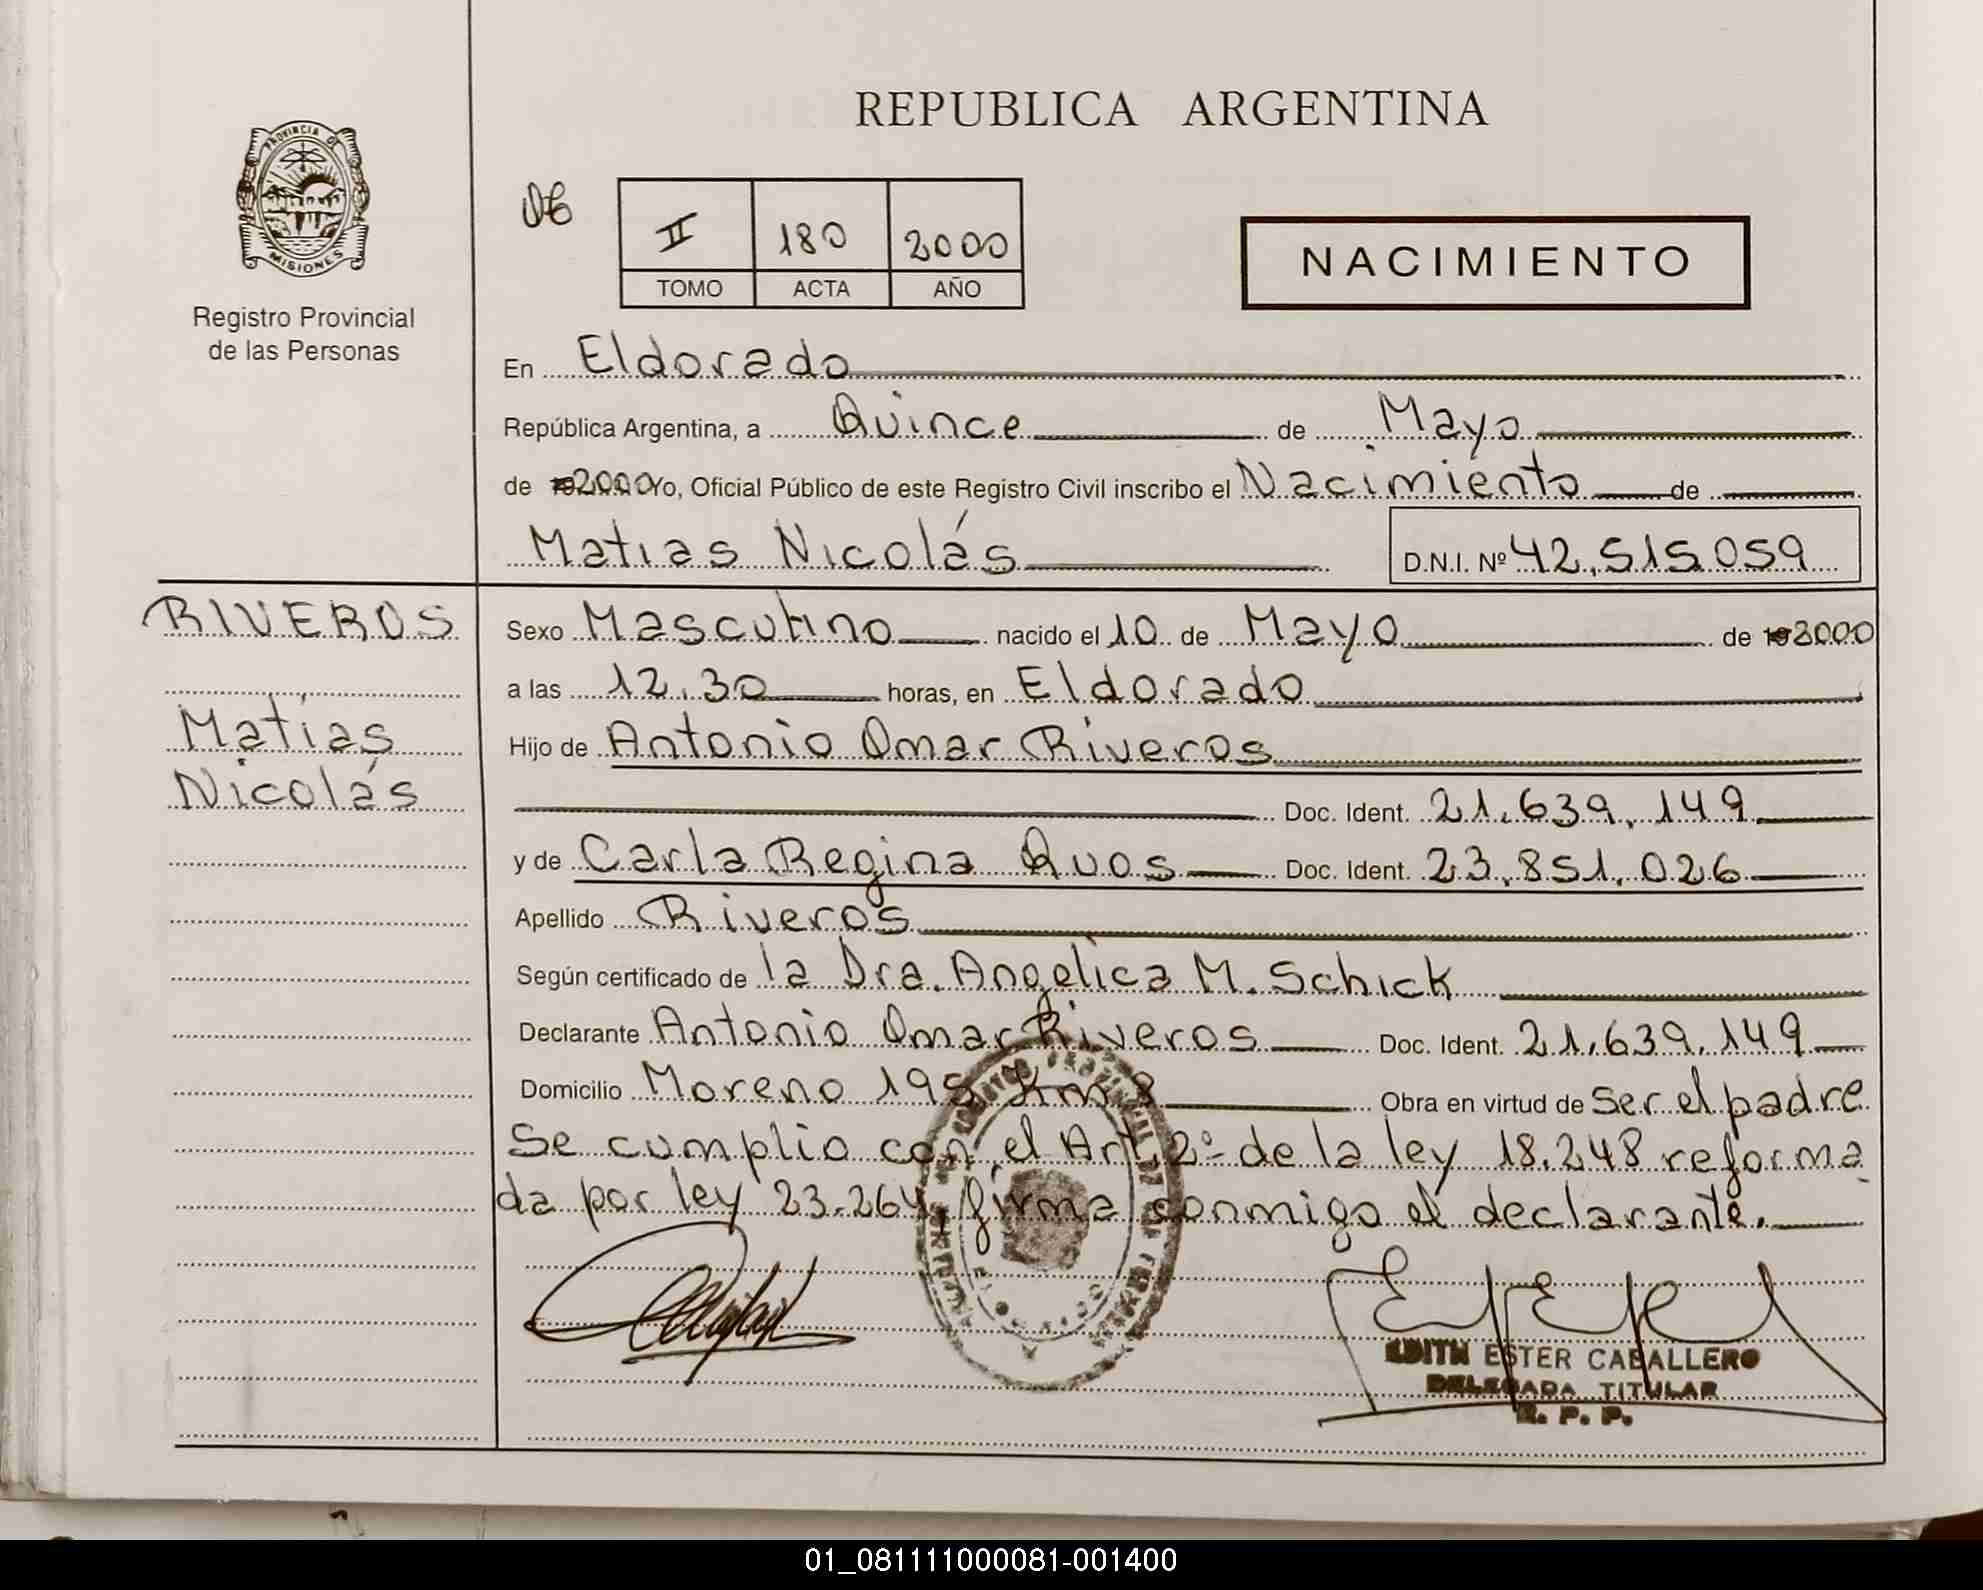 REPUBLICA ARGENTINA
PROVINCIA DE
MISIONES
Registro Provincial
de las Personas
II 180 2000
TOMO ACTA AÑO
NACIMIENTO
En Eldorado
República Argentina, a Quince de Mayo
de 2000 Yo, Oficial Público de este Registro Civil inscribo el Nacimiento de
Matias Nicolás D.N.I. Nº 42.515.059
RIVEROS
Matías
Nicolás
Sexo Masculino nacido el 10 de Mayo de 2000
a las 12.30 horas, en Eldorado
Hijo de Antonio Omar Riveros
Doc. Ident. 21.639.149
y de Carla Regina Quos Doc. Ident. 23.851.026
Apellido Riveros
Según certificado de la Dra. Angelica M. Schick
Declarante Antonio Omar Riveros Doc. Ident. 21.639.149
Domicilio Moreno 195 Km 8 Obra en virtud de Ser el padre
Se cumplio con el Art. 2º de la ley 18.248 reforma
da por ley 23.264, firma conmigo el declarante.
EDITH ESTER CABALLERO
DELEGADA TITULAR
R. P. P.
01_081111000081-001400